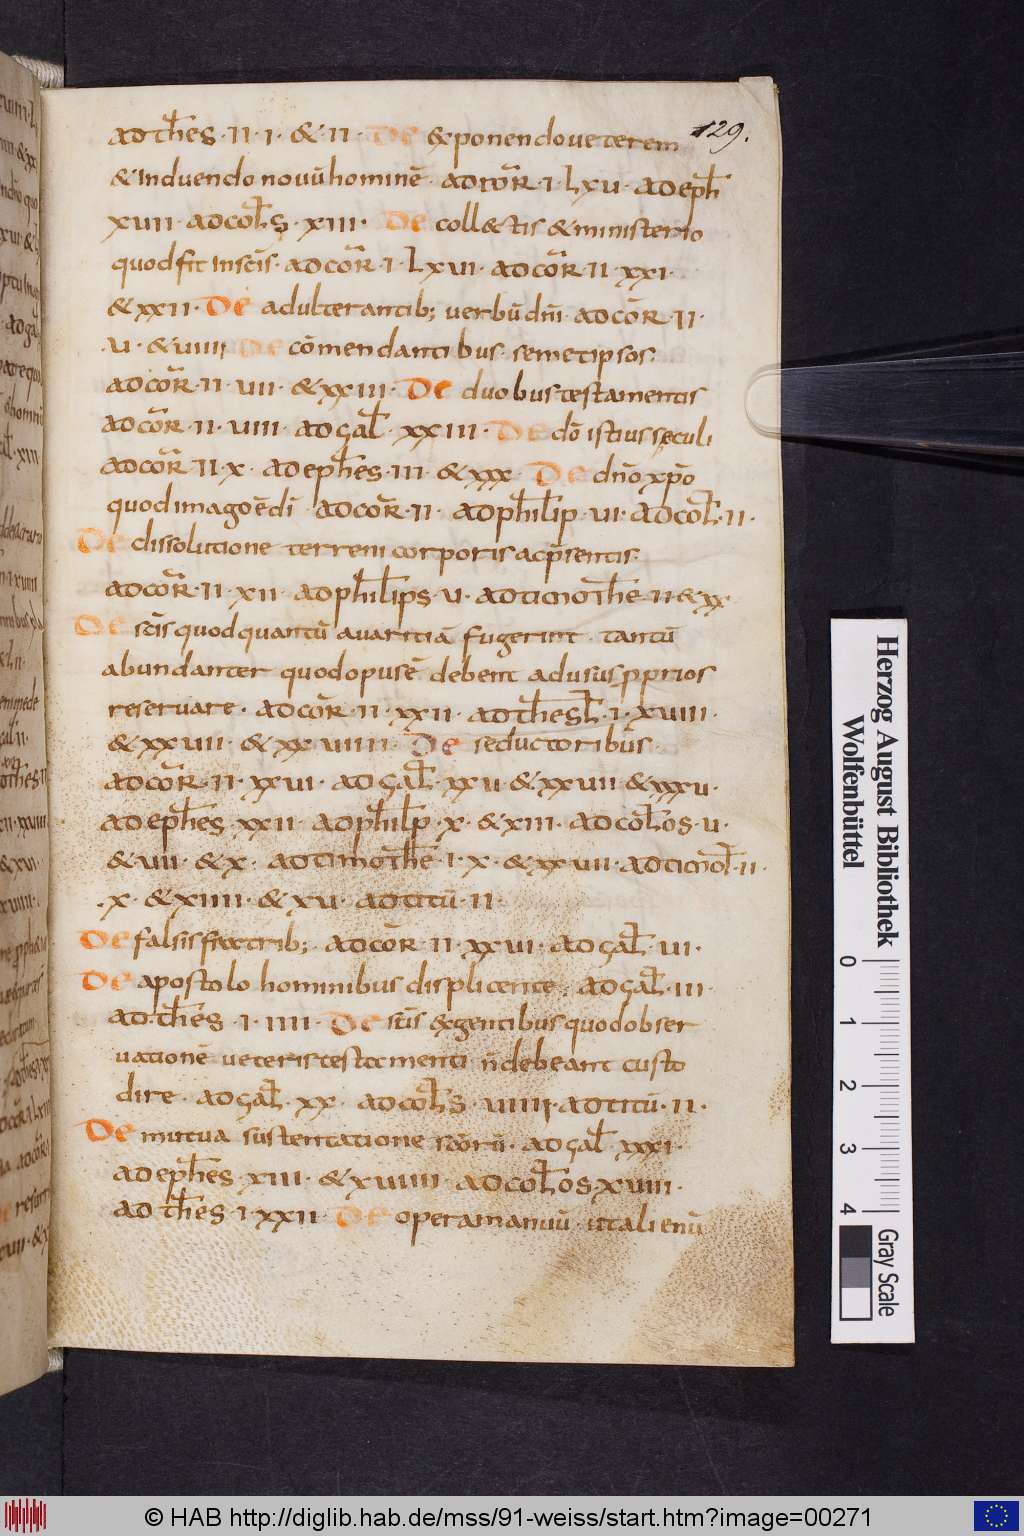 129.
ad thes̄ · II · I · & II · De exponendo ueterem
& induendo nouū hominē · ad cōr · I · LXV · ad eph̄
XVII · ad col̄s · XIII · De coll&tis & ministerio
quod fit In scīs · ad cōr · I · LXVI · ad cōr · II · XXI ·
& XXII · De adulterantib; uerbū dnī · ad cōr · II ·
· V · & VIIII De cōmendantibus semetipsos ·
ad cōr · II · VII · & XXIII · De duobus testamentis
ad cōr · II · VIIII · ad gal̄ · XXIII · De dō istius sęculi
ad cōr · II · X · ad ephēs · III · & XXX · De dnō xp̄o
quod imago ē dī · ad cōr · II · ad philip̄ · VI · ad col̄ · II ·
De dissolutione terreni corporis ac p̄sentis ·
ad cōr · II · XII · ad philip̄s · V · ad timothē II & XX ·
De scīs quod quantū auaritiā fugerint tantū
abundanter quod opus ē debent ad usus pprios
reseruare · ad cōr · II · XXII · ad thesl̄ · I · XVIII ·
& XXVII · & XXVIIII · De seductoribus ·
ad cōr · II · XXVI · ad gal̄ · XXV & XXVII & XXXV ·
ad ephēs XXII · ad philp̄ · X · & XIII · ad col̄os · V ·
& VII · & X · ad timothē · I · X · & XXVII · ad timōl̄ · II ·
· X · & XIIII · & XV · ad titū · II ·
De falsis fratrib; · ad cōr II · XXVI · ad gal̄ · VI ·
De apostolo hominibus displicente · ad gal̄ · III ·
ad thēs · I · IIII · De scīs ex gentibus quod obser
uationē ueteris testamenti n̄ debeant custo
dire · ad gal̄ · XX · ad col̄s · VIIII · ad titū · II ·
De mutua sustentatione scōrū · ad gal̄ XXXI ·
ad ephēs · XIII · & XVIIII · ad col̄os XVIII ·
ad thēs · I · XXII · De opera manuū ut alienū
Herzog August Bibliothek
Wolfenbüttel
0 1 2 3 4
Gray Scale
© HAB http://diglib.hab.de/mss/91-weiss/start.htm?image=00271